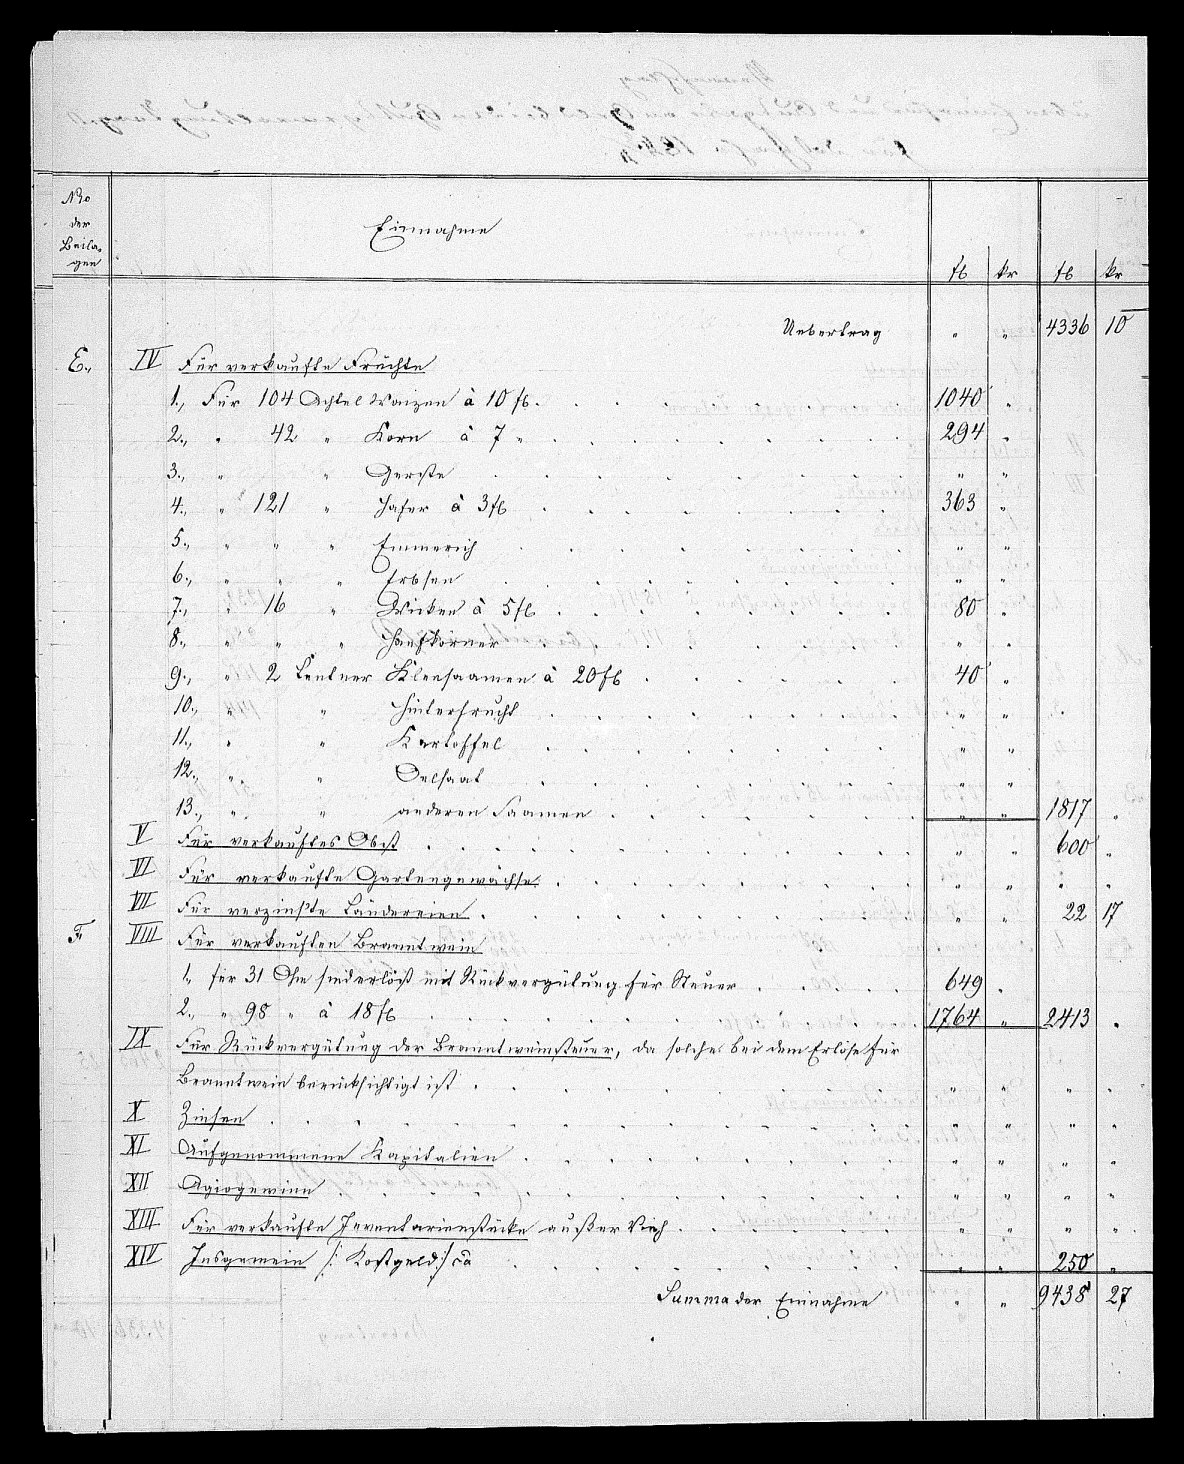 Nro
der
Beila-
gen
Einnahme
fl kr fl kr
Uebertrag " " 4336 10
E., IV Für verkaufte Früchte
1., Für 104 Achtel Waizen à 10 fl. 1040 "
2., " 42 " Korn à 7 " 294 "
3., " " Gerste " "
4., " 121 " Hafer à 3 fl 363 "
5., " " " Emmerich " "
6., " " " Erbsen " "
7., " 16 " Wicken à 5 fl 80 "
8., " " " Hanfkörner " "
9., " 2 Centner Kleesaamen à 20 fl 40 "
10., " " Hinterfrucht " "
11., " " Kartoffel " "
12., " " Oelsaat " "
13., " " anderen Saamen " " 1817 "
V Für verkauftes Obst " " 600 "
VI Für verkaufte Gartengewächse " " " "
VII Für verzinste Ländereien " " 22 17
F VIII Für verkauften Branntwein
1., für 31 Ohm mit Rückvergütung für Steuer 649 .
2., " 98 " à 18 fl 1764 " 2413 .
IX Für Rückvergütung der Branntweinsteuer, da solche bei dem Erlöse für
Branntwein berücksichtigt ist " " " "
X Zinsen " " " "
XI Aufgenommene Kapitalien " " " "
XII Agiogewinn " " " "
XIII Für verkaufte Inventarienstücke außer Vieh " " " "
XIV Insgemein /: Kostgeld :/ ca " " 250 "
Summa der Einnahme " " 9438 27